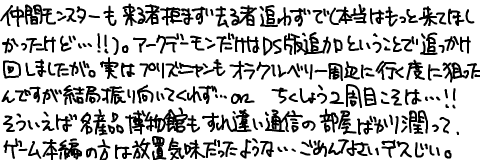 仲間モンスターも来る者拒まず去る者追わずで(本当はもっと来てほし
かったけど…!!)。アークデーモンだけはDS版追加ということで追っかけ
回しましたが。実はプリズニャンもオラクルベリー周辺に行く度に狙った
んですが結局振り向いてくれず…orz ちくしょう2周目こそは…!!
そういえば名産品博物館もすれ違い通信の部屋ばかり潤って、
ゲーム本編の方は放置気味だったような…ごめんなさいデスじい。